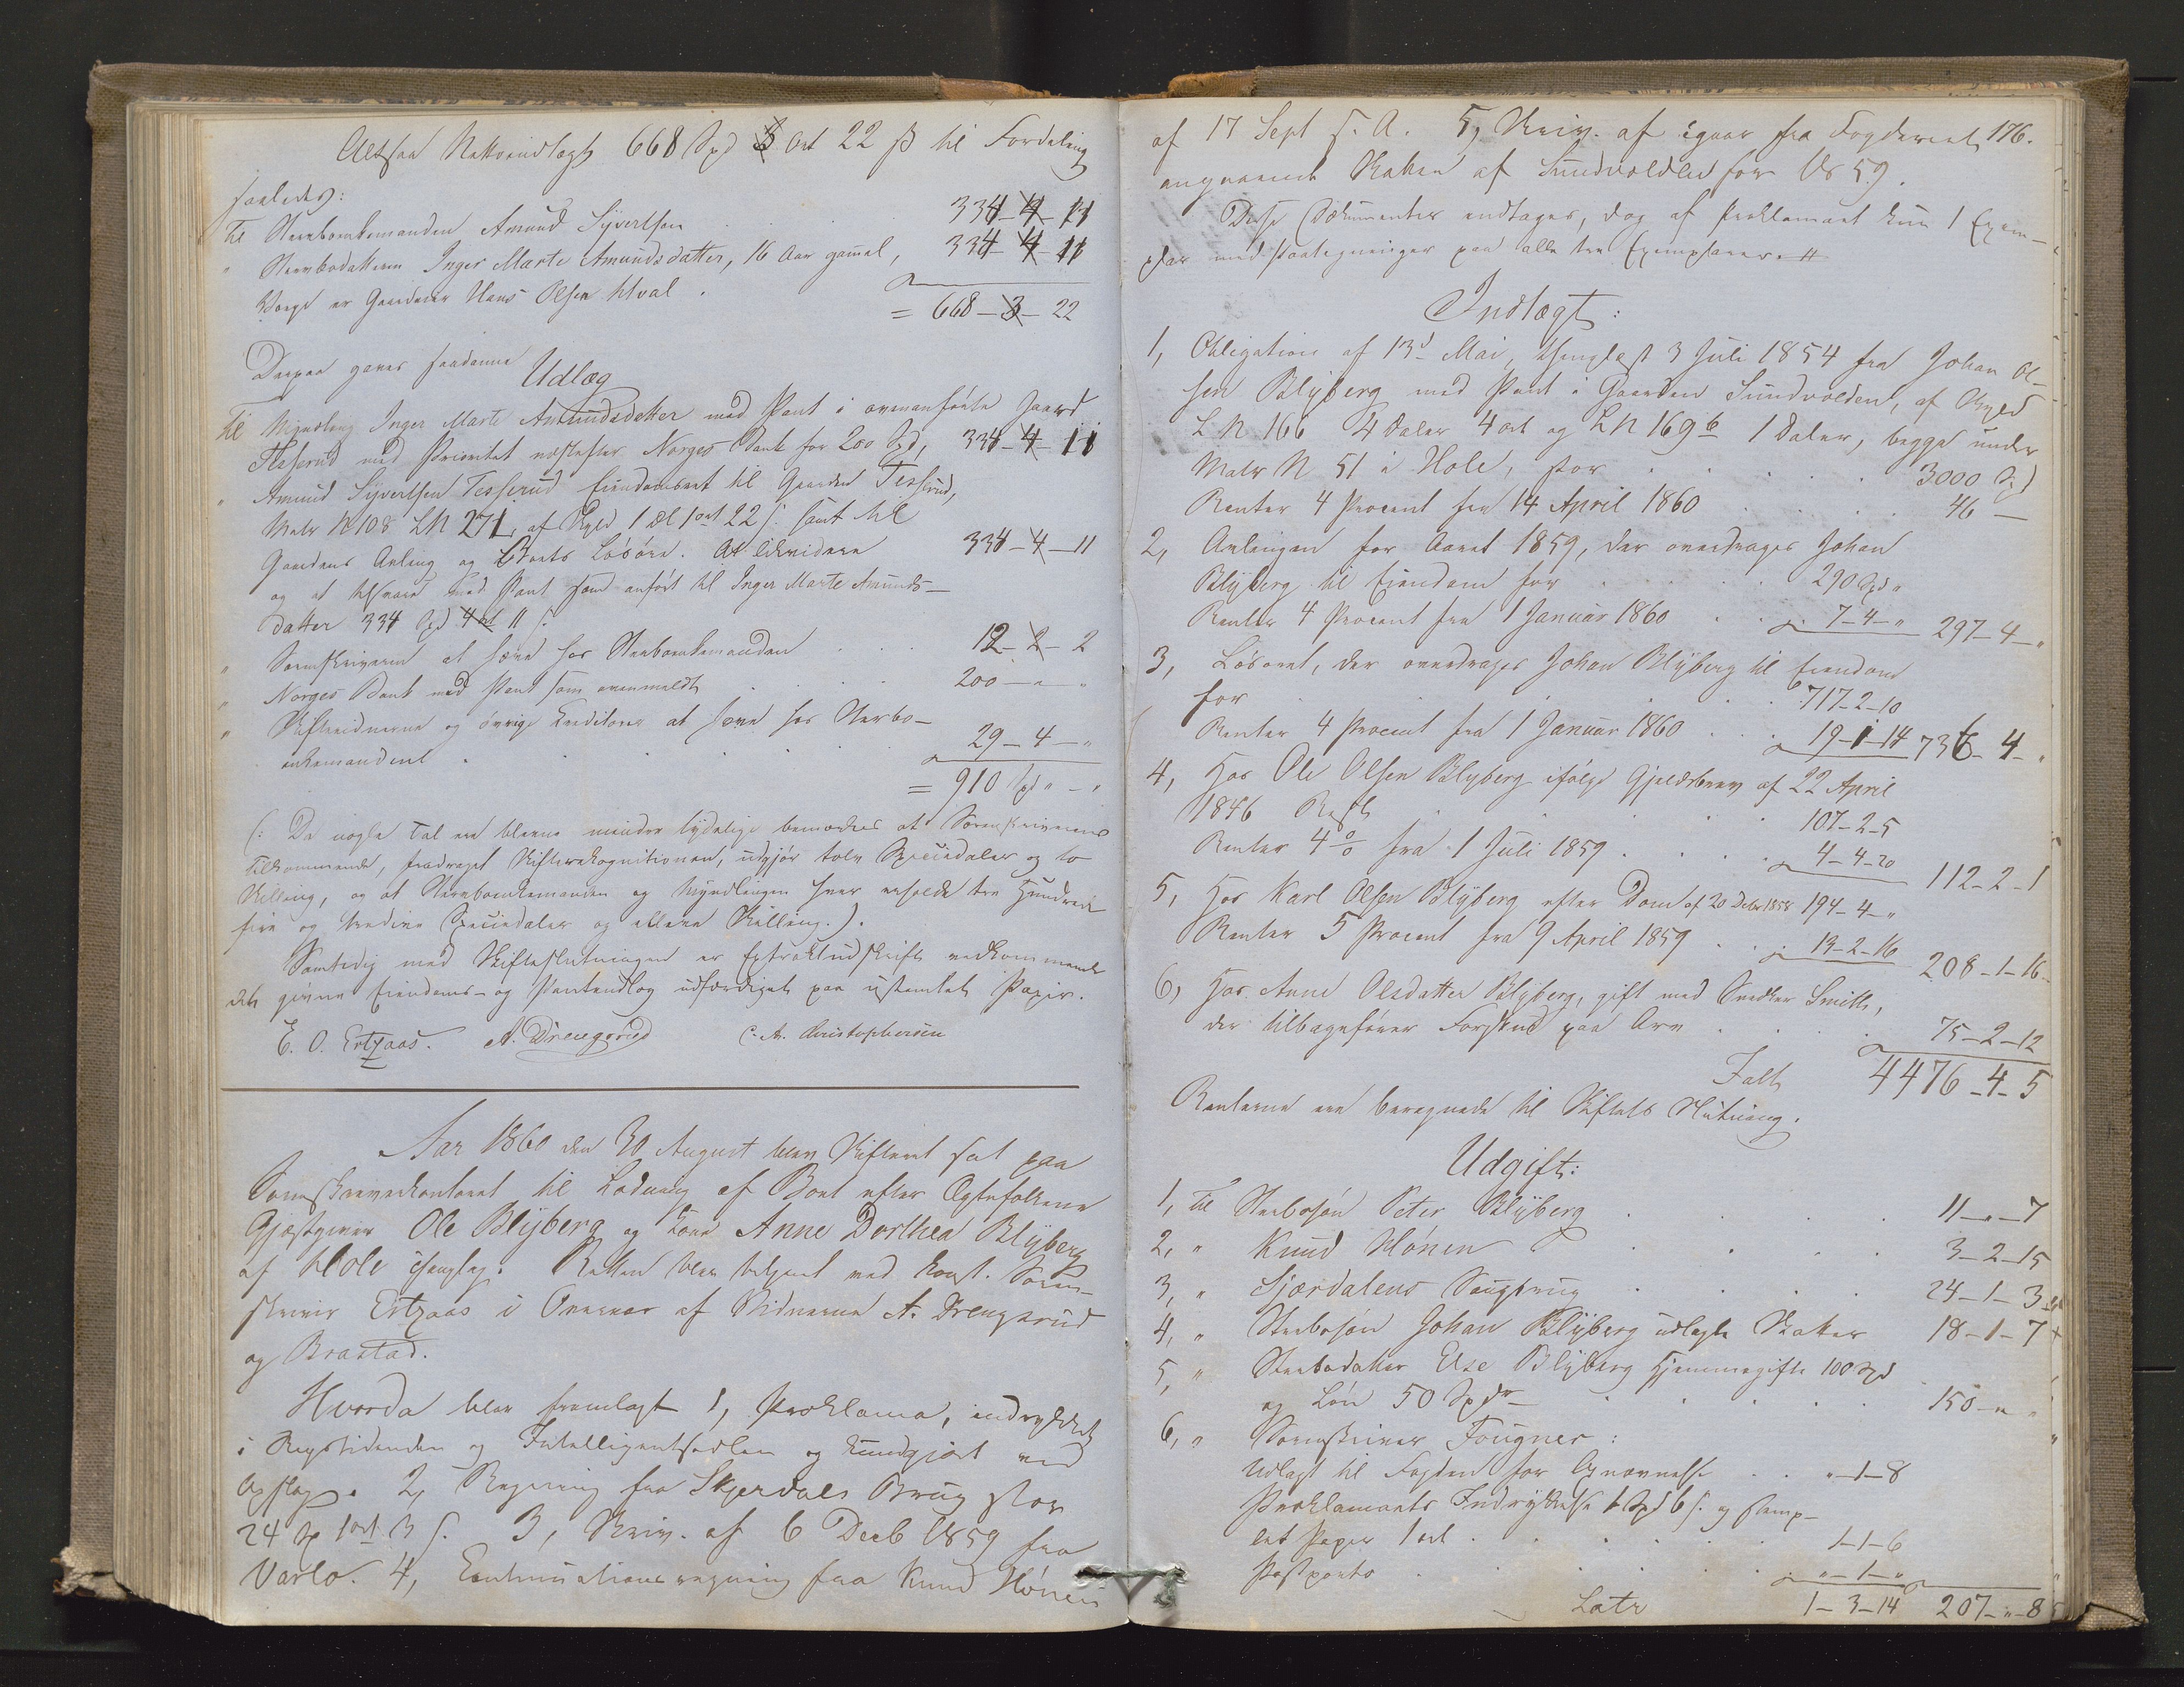 Altsaa Nettoindtægt 668 Spd 3 Ort 22 ß til Fordeling
saaledes:
Til Sterboenkemanden Amund Syvertsen . . 334-4-11
" Sterbodatteren Inger Marte Amundsdatter, 16 Aar gamel, 334-4-11
Værge er Gaardeier Hans Olsen Hval.
= 668-3-22
Derpaa gaves saadanne
Udlæg
Til Myndling Inger Marte Amundsdatter med Pant i ovenanførte Gaard
Tesserud med Prioritet næstefter Norges Bank for 200 Spd, 334-4-11
" Amund Syvertsen Tesserud Eiendomsret til Gaarden Tesserud,
Matr N 108 LN 271, af Skyld 1 Dl 1 ort 22 ß. samt til
Gaardens Avling og Boets Løsøre. At likvidere 334-4-11
og at tilsvare med Pant som anført til Inger Marte Amunds-
datter 334 Spd 4 ort 11 ß.
" Sorenskriveren at hæve hos Sterboenkemanden . . . 12-2-2
" Norges Bank med Pant som ovenmeldt . . . . 200-"-"
" Skiftevidnerne og øvrige Kreditorer at hæve hos Sterbo-
enkemanden . . . . . 29-4-"
= 910 Spd "-"
(: Da nogle Tal ere blevne mindre tydelige bemærkes at Sorenskriverens
Tilkommende, fradraget Skifterekognitionen, udgjør tolv Speciedaler og to
Skilling, og at Sterboenkemanden og Myndlingen hver erholde tre Hundrede
fire og tredive Speciedaler og elleve Skilling.).
Samtidig med Skifteslutningen er Extraktudskrift vedkommende
det givne Eiendoms- og Pantudlæg udfærdiget paa ustemplet Papir.
E. O. Ertzaas. A. Drengsrud C. A. Christophersen
Aar 1860 den 30 August blev Skifteret sat paa
Sorenskriverkontoret til Ladning af Boet efter Ægtefolkene
Gjæstgiver Ole Blyberg og Kone Anne Dorthea Blyberg
af Hole Thinglag. Retten blev betjent ved konst. Soren-
skriver Ertzaas i Overvær af Vidnerne A. Drengsrud
og Brastad.
Hvorda blev fremlagt 1, Proklama, indrykket
i Rigstidenden og Intelligentsedlen og kundgjort ved
Opslag. 2, Regning fra Skjerdals Brug stor
24 Sp 1 ort 3 ß. 3, Skriv. af 6 Decb 1859 fra
Varlo. 4, regning fra Knud Hønen
af 17 Sept s. A. 5, Skriv. af igaar fra Fogderiet 176.
angaaende Skatten af Sundvolden for 1859.
Disse Dokumenter indtages, dog af Proklamaet kun 1 Exem-
plar med Paategninger paa alle tre Exemplarer.
Indtægt:
1, Obligation af 13d Mai, thinglæst 3 Juli 1854 fra Johan Ol-
sen Blyberg med Pant i Gaarden Sundvolden, af Skyld
LN 166 4 Daler 4 ort og LN 169 b 1 Daler, begge under
Matr N 51 i Hole, stor . . . . . 3000 Spd
Renter 4 Procent fra 14 April 1860 . . . . 46 —
2, Avlingen for Aaret 1859, der overdrages Johan
Blyberg til Eiendom for . . . . 290 Spd "
Renter 4 Procent fra 1 Januar 1860 . . 7-4-" 297-4-"
3, Løsøret, der overdrages Johan Blyberg til Eiendom
for . . . . . . 717-2-10
Renter 4 Procent fra 1 Januar 1860 . . . 19-1-14 736-4-"
4, Hos Ole Olsen Blyberg ifølge Gjeldsbrev af 22 April
1846 Rest . . . . . 107-2-5
Renter 4 % fra 1 Juli 1859 . . . . 4-4-20 112-2-1
5, Hos Karl Olsen Blyberg efter Dom af 20 Decbr 1858 194-4-"
Renter 5 Procent fra 9 April 1859 . . 13-2-16 208-1-16
6, Hos Anne Olsdatter Blyberg, gift med Snedker Smith,
der tilbagefører Forskud paa Arv . . . . 75-2-12
Ialt 4476-4-5
Renterne ere beregnede til Skiftets Slutning.
Udgift:
1, Til Sterbosøn Peter Blyberg . . . . 11-"-7
2, " Knud Hønen . . . . 3-2-15
3, " Sjærdalens Saugbrug . . . . 24-1-3
4, " Sterbosøn Johan Blyberg udlagte Skatter 18-1-7
5, " Sterbodatter Else Blyberg Hjemmegifte 100 Spd
og Løn 50 Spdr . . . . . 150-"-"
6, " Sorenskriver Fougner:
Udlagt til Fogden for Opnævnelse . . . "-1-8
Proklamaets Indrykkelse 1 Spd 6 ß. og stemp-
let Papir 1 ort . . . . . . 1-1-6
Postporto . . . . . . "-1-"
Latr 1-3-14 207-"-8